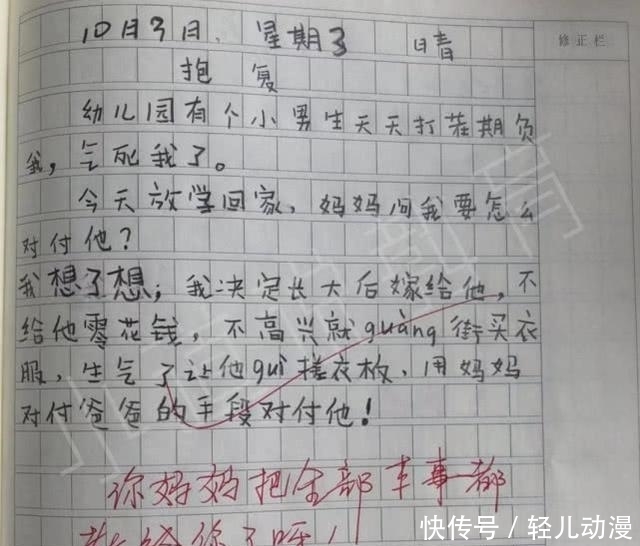 10月3日. 星期3 日晴
修正栏
抱 复
幼儿园有个小男生天天打我期负
我，气死我了。
今天放学回家，妈妈问我要怎么
对付他？
我想了想；我决定长大后嫁给他，不
给他零花钱，不高兴就guàng街买衣
服，生气了让他guì搓衣板，用妈妈
对付爸爸的手段对付他！
你妈妈把全部本事都
教给你了呀！
快传号 / 轻儿动漫